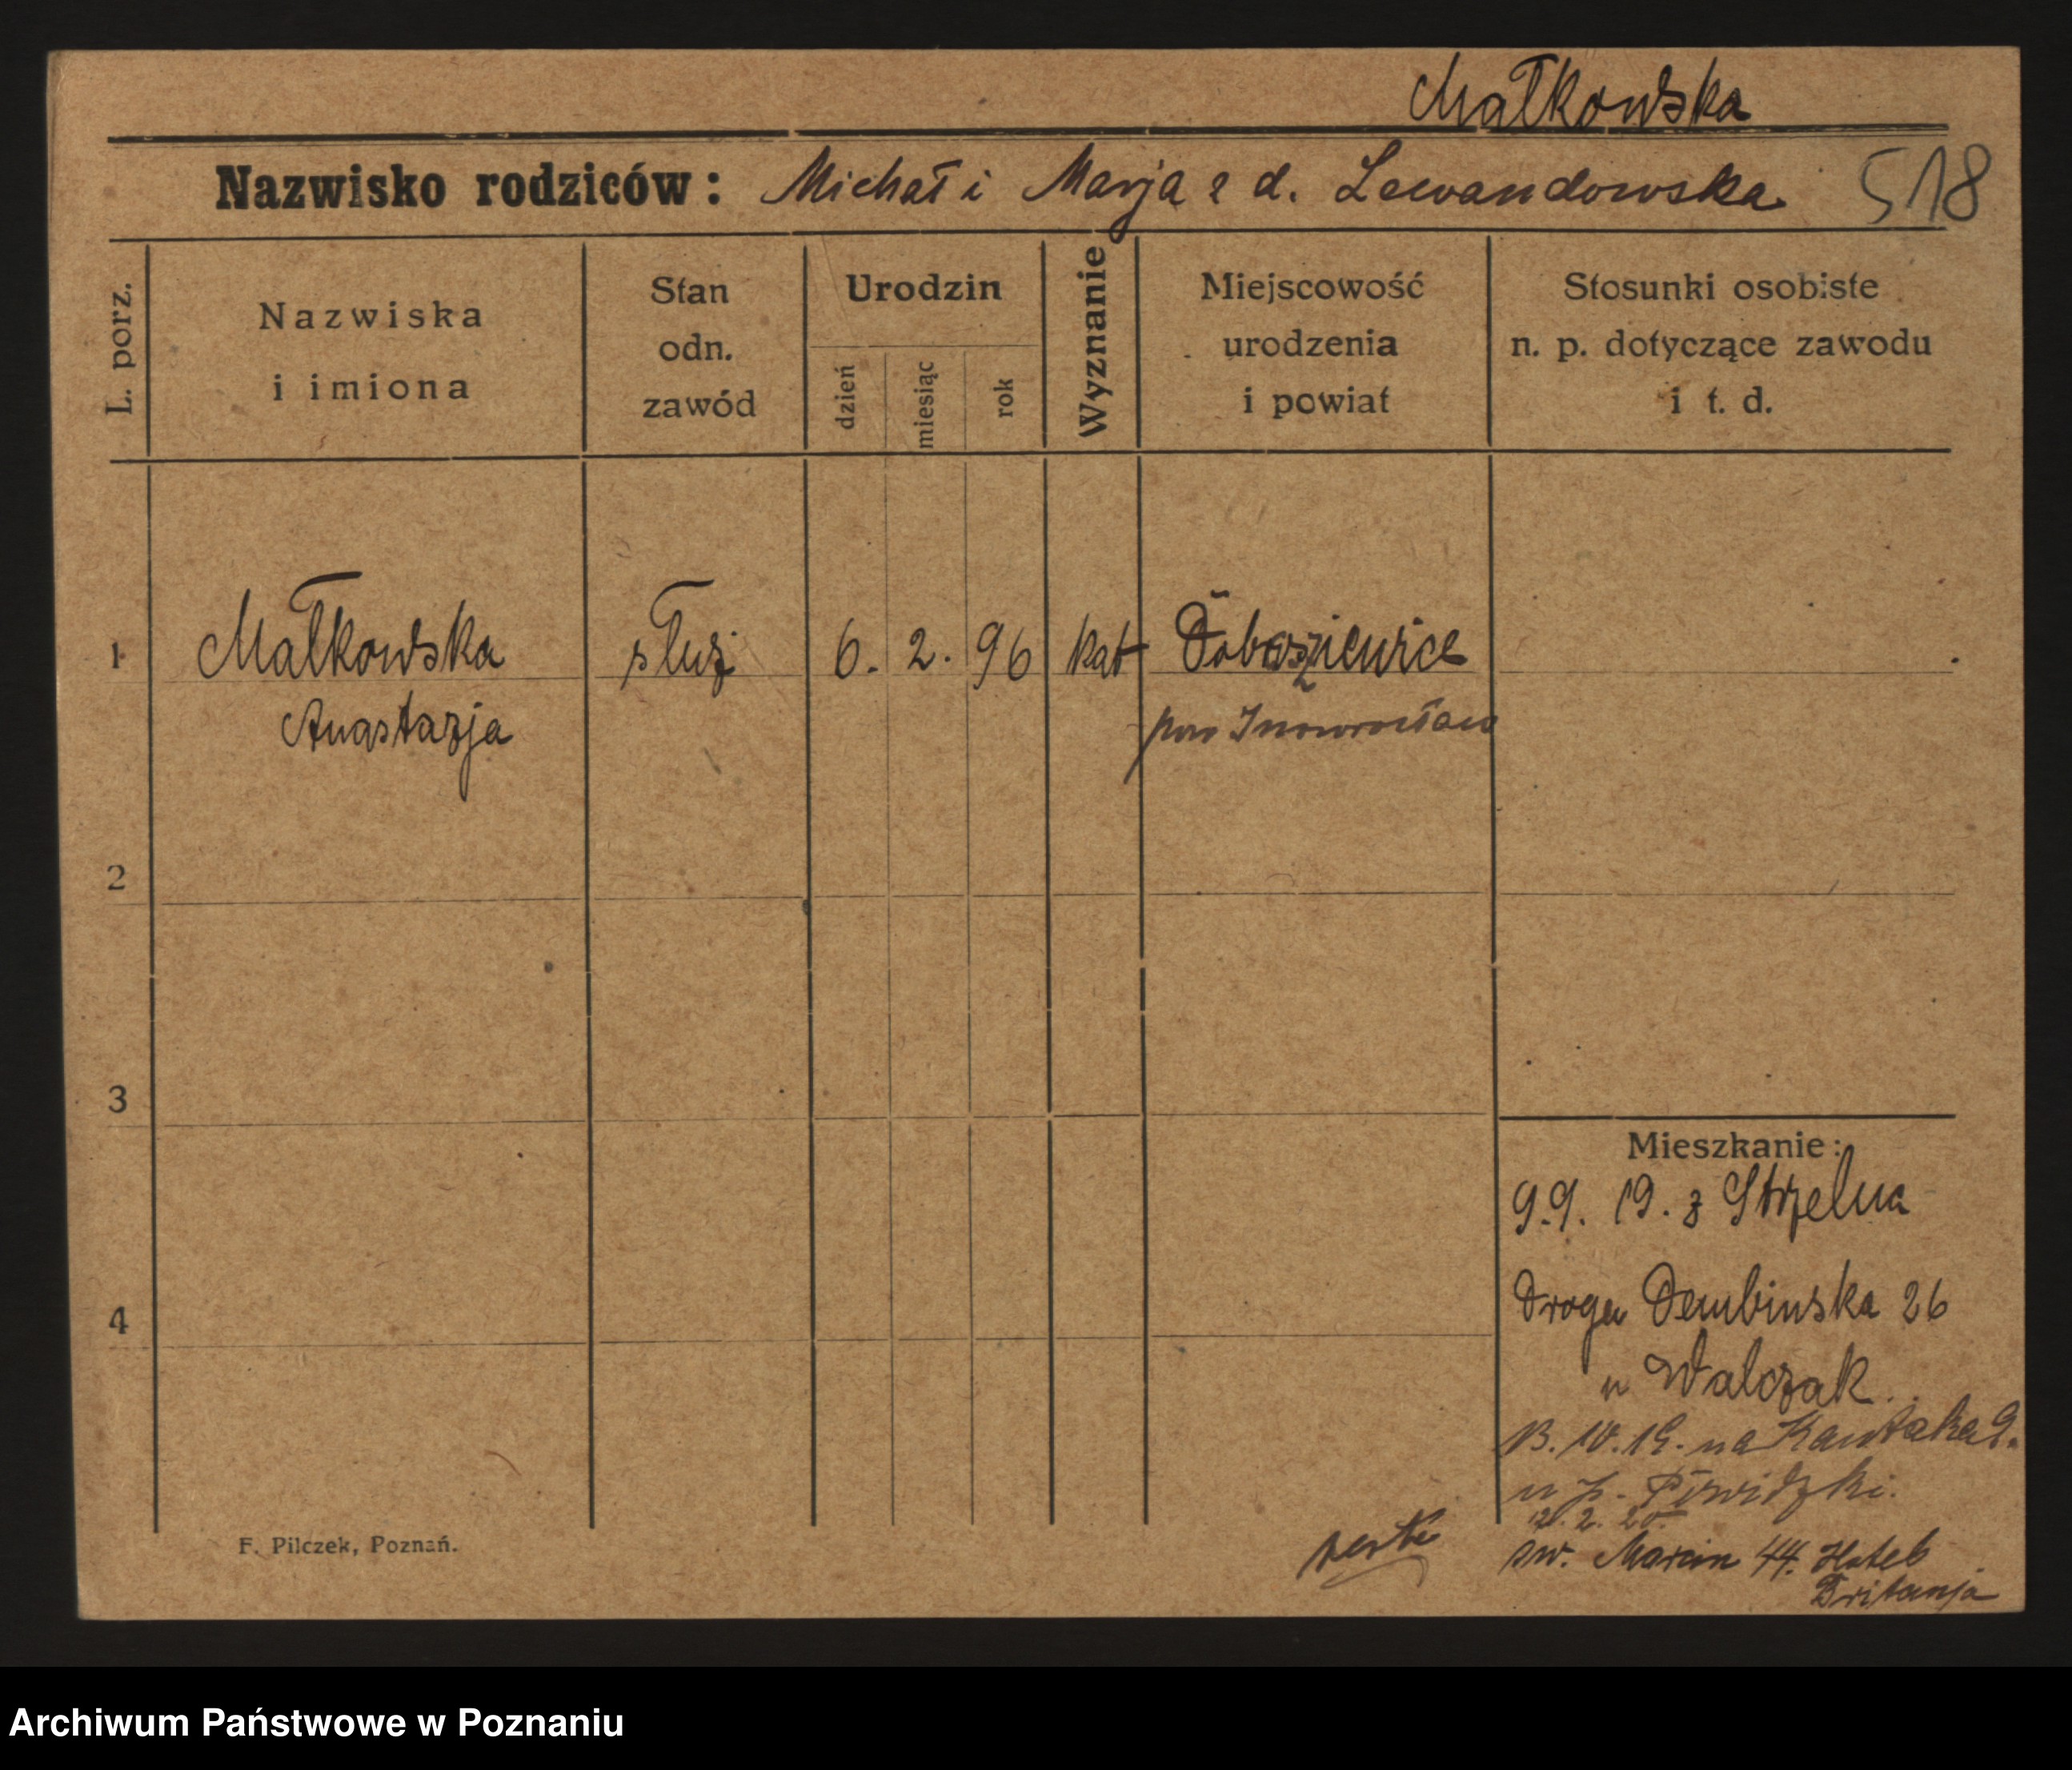 Małkowska
Nazwisko rodziców: Michał i Marja z d. Lewandowska
518
L. porz.
Nazwiska
i imiona
Stan
odn.
zawód
Urodzin
dzień
miesiąc
rok
Wyznanie
Miejscowość
urodzenia
i powiat
Stosunki osobiste
n. p. dotyczące zawodu
i t. d.
1
Małkowska
Anastazja
służ
6. 2. 96
kat
pow Inowrocław
2
3
4
Mieszkanie:
9.9. 19. z Strzelna
Droga Dembinska 26
u Walczak
13. 10. 19. na
u p.
12. 2. 20.
św. Marcin 44. Hotel
Britanja
F. Pilczek, Poznań.
Archiwum Państwowe w Poznaniu